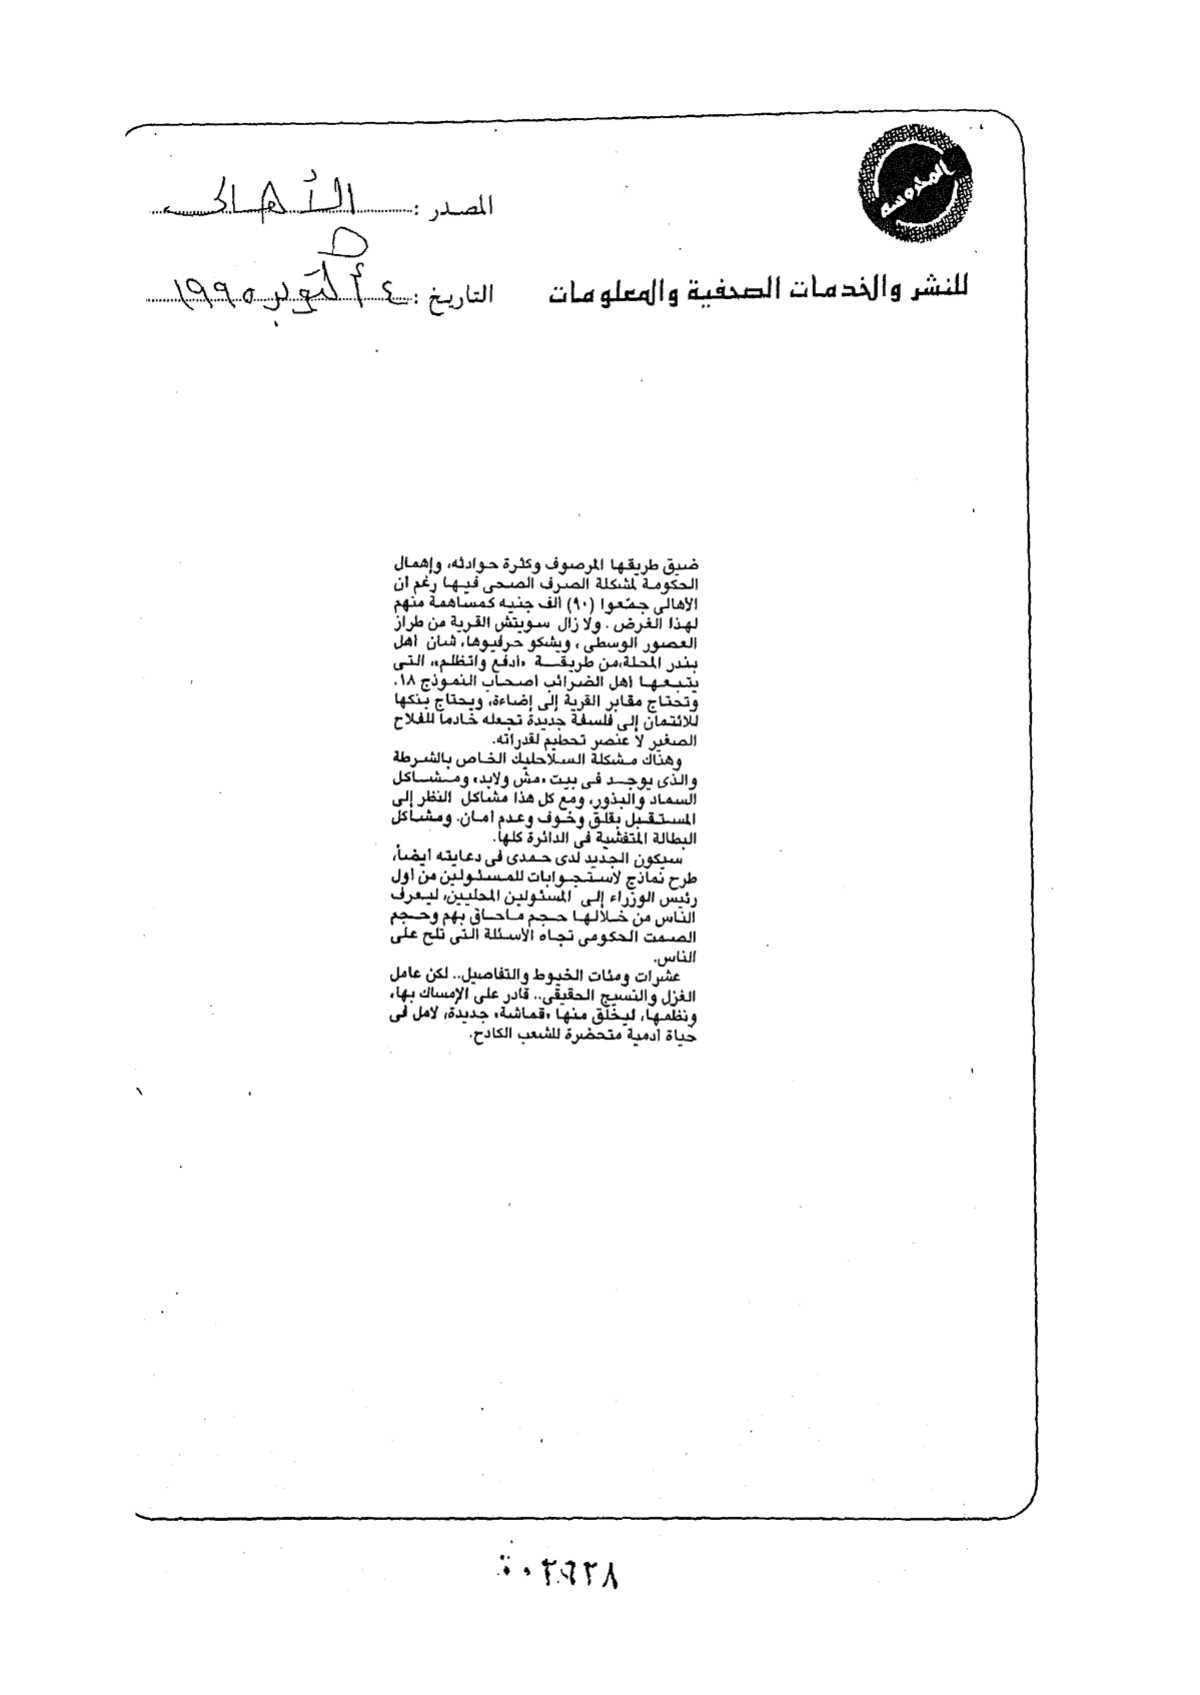 المحروسه
المصدر : الأهالى
للنشر والخدمات الصحفية والمعلومات
التاريخ : ٤ أكتوبر ١٩٩٥
ضيق طريقها المرصوف وكثرة حوادثه، وإهمال
الحكومة لمشكلة الصرف الصحى فيها رغم أن
الأهالى جمّعوا (٩٠) ألف جنيه كمساهمة منهم
لهذا الغرض . ولا زال سويتش القرية من طراز
العصور الوسطى ، ويشكو حرفيوها، شأن أهل
بندر المحلة،من طريقة «أدفع واتظلم»، التى
يتبعها أهل الضرائب أصحاب النموذج ١٨.
وتحتاج مقابر القرية إلى إضاءة، ويحتاج بنكها
للائتمان إلى فلسفة جديدة تجعله خادماً للفلاح
الصغير لا عنصر تحطيم لقدراته.
وهناك مشكلة السلاحليك الخاص بالشرطة
والذى يوجد فى بيت «مش ولابد» ومشاكل
السماد والبذور، ومع كل هذا مشاكل النظر إلى
المستقبل بقلق وخوف وعدم أمان. ومشاكل
البطالة المتفشية فى الدائرة كلها.
سيكون الجديد لدى حمدى فى دعايته أيضاً،
طرح نماذج لاستجوابات للمسئولين من أول
رئيس الوزراء إلى المسئولين المحليين، ليعرف
الناس من خلالها حجم ماحاق بهم وحجم
الصمت الحكومى تجاه الأسئلة التى تلح على
الناس.
عشرات ومئات الخيوط والتفاصيل.. لكن عامل
الغزل والنسيج الحقيقى.. قادر على الإمساك بها،
ونظمها، ليخلق منها «قماشة» جديدة، لأمل فى
حياة آدمية متحضرة للشعب الكادح.